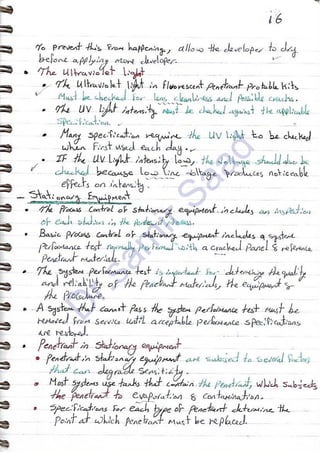 16
To prevent this from happening, allow the developer to dry
before applying more developer.
• The Ultraviolet light
• The Ultraviolet light in fluorescent Penetrant Protable Kits
Must be checked for lens cleanliness and Possible cracks.
• The UV light intensity Must be checked against the applicable
Specification.
• Many Specification require the UV light to be checked
when First used each day.
• IF the UV Light intensity low, the Voltage should also be
checked because low line Voltage Produces noticeable
effects on intensity.
– Stationary Equipment
• The Process Control of Stationary equipment includes an inspection
of each station in the
• Basic Process Control of Stationary equipment includes a system
Performance test normally Performed with a cracked Panel & reference
Penetrant materials.
• The System Performance test is important for determining the quality
and reliability of the Penetrant Materials, the equipment &
the Procedure.
• A System that cannot Pass the System Performance test must be
removed from service until acceptable performance specifications
are restored.
• Penetrant in Stationary equipment
• Penetrant in Stationary equipment are subject to several factors
that can degrade Sensitivity.
• Most Systems use tanks that contain the Penetrant, Which Subjects
the penetrant to evaporation & Contamination.
• Specifications for Each type of Penetrant determine the
Point at which Penetrant Must be replaced.